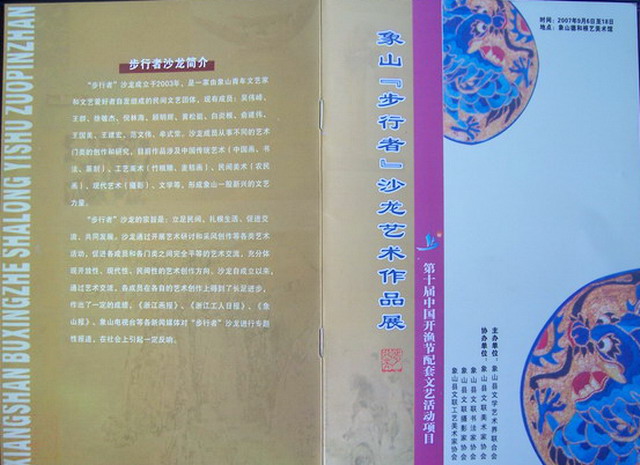 XIANGSHAN BUXINGZHE SHALONG YISHU ZUOPINZHAN
步行者沙龙简介
“步行者”沙龙成立于2003年，是一家由象山青年文艺家
和文艺爱好者自发组成的民间文艺团体，现有成员：吴伟峰、
王群、徐敬杰、倪林海、
王国良、王建宏、范文伟、牟式堂。沙龙成员从事不同的艺术
门类的创作和研究，目前作品涉及中国传统艺术（中国画、书
法、篆刻）、工艺美术（竹根雕、麦秸画）、民间美术（农民
画）、现代艺术（摄影）、文学等，形成象山一股新兴的文艺
力量。
“步行者”沙龙的宗旨是：立足民间、扎根生活、促进交
流、共同发展。沙龙通过开展艺术研讨和采风创作等各类艺术
活动，促进各成员和各门类之间完全平等的艺术交流，充分体
现开放性、现代性、民间性的艺术创作方向。沙龙自成立以来，
通过艺术交流，各成员在各自的艺术创作上得到了长足进步，
作出了一定的成绩。《浙江画报》、《浙江工人日报》、《象
山报》、象山电视台等各新闻媒体对“步行者”沙龙进行专题
性报道，在社会上引起一定反响。
象山『步行者』沙龙艺术作品展
第十届中国开渔节配套文艺活动项目
时间：2007年9月6日至18日
地点：象山德和根艺美术馆
主办单位：象山县文学艺术界联合会
协办单位：象山县文联美术家协会
象山县文联书法家协会
象山县文联摄影家协会
象山县文联工艺美术家协会